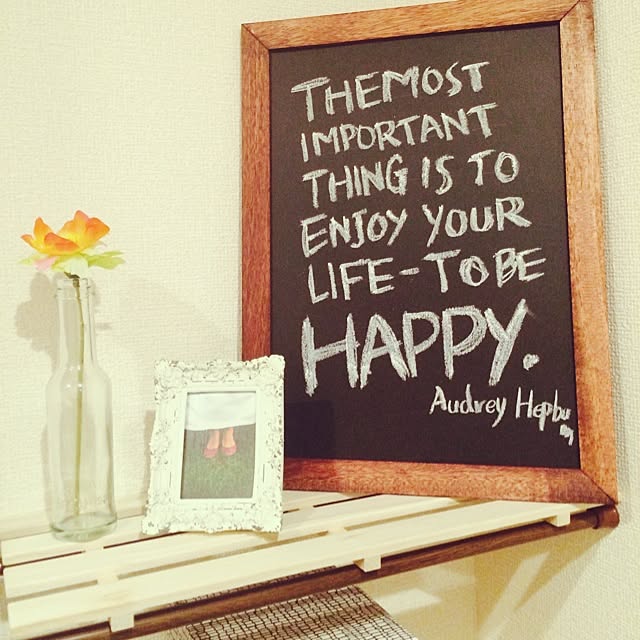 THE MOST
IMPORTANT
THING IS TO
ENJOY YOUR
LIFE-TO BE
HAPPY.
Audrey Hepbu
rn